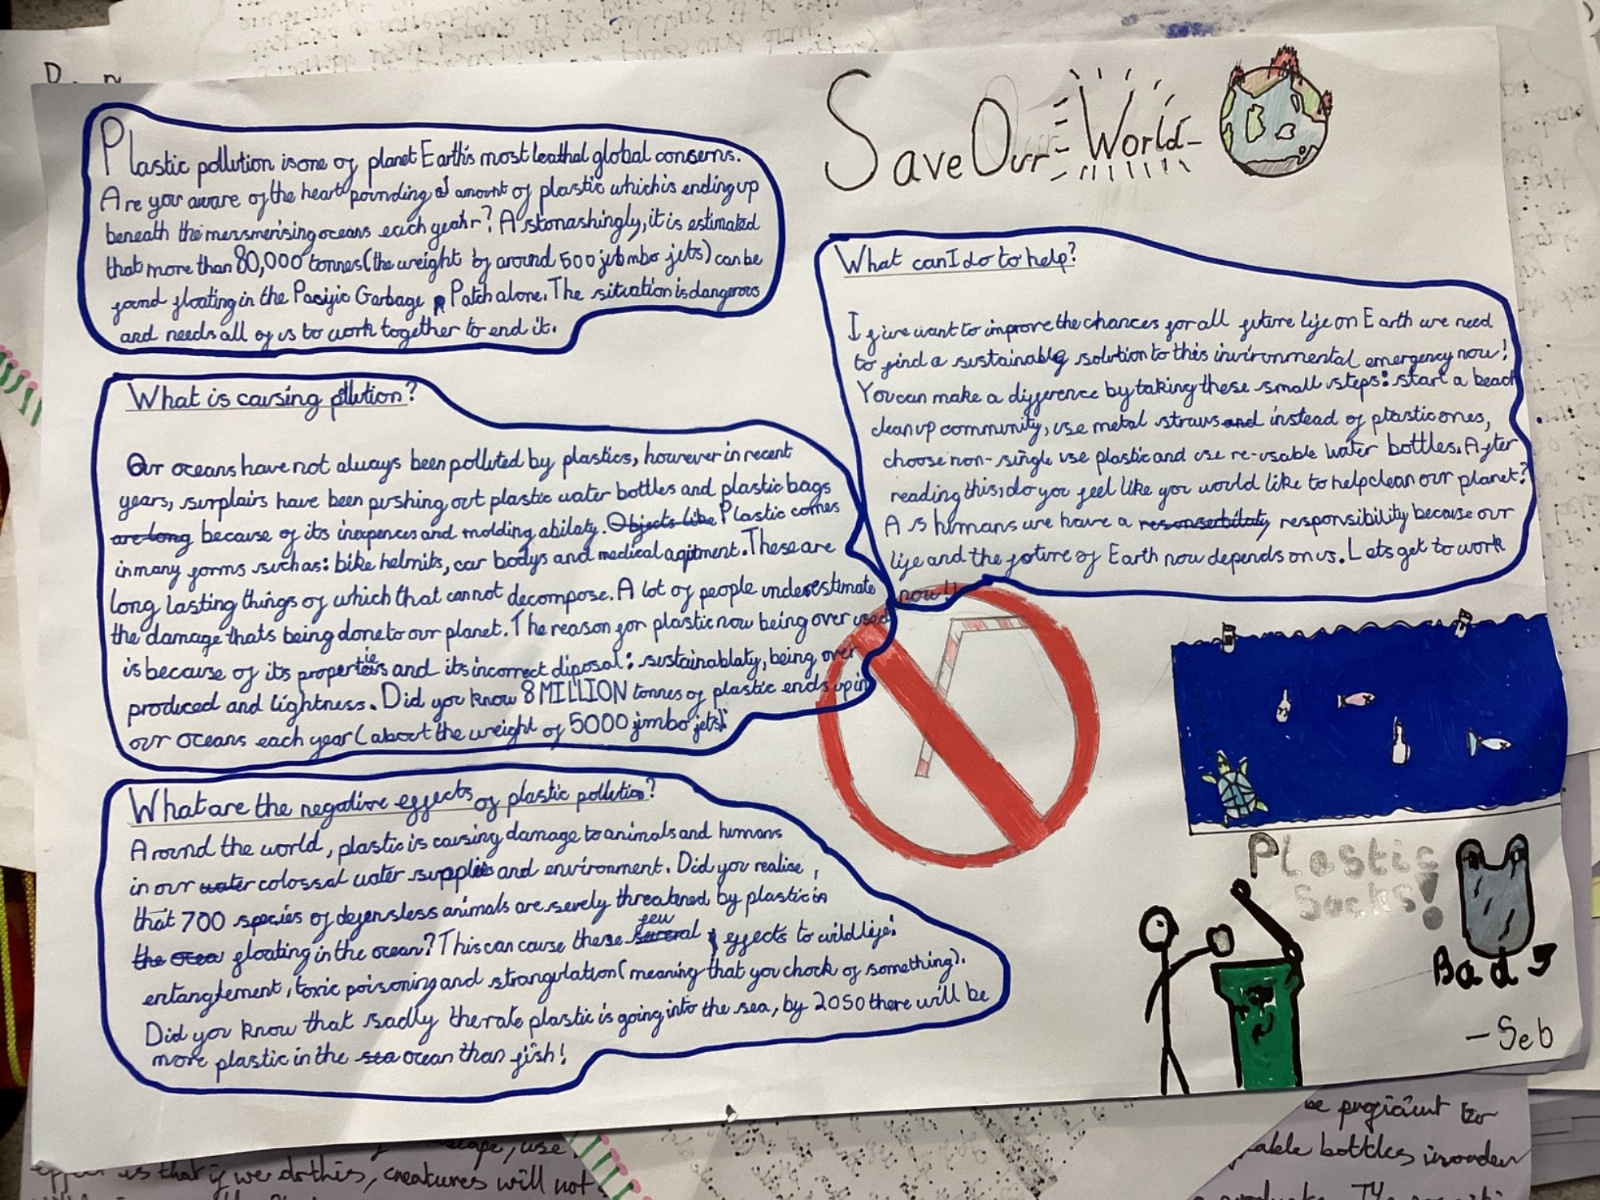 Save Our World
Plastic pollution is one of planet Earth's most leathal global conserns.
Are you aware of the heart pounding amount of plastic which is ending up
beneath the messmerising oceans each yeahr? Astonashingly, it is estimated
that more than 80,000 tonnes (the weight by around 500 jumbo jets) can be
found floating in the Pacific Garbage Patch alone. The situation is dangerous
and needs all of us to work together to end it.
What is causing pllution?
Our oceans have not always been polluted by plastics, however in recent
years, surplairs have been pushing out plastic water bottles and plastic bags
are long because of its inexpences and molding abilaty. Objects like Plastic comes
in many forms such as: bike helmits, car bodys and medical aqitment. These are
long lasting things of which that cannot decompose. A lot of people underestimate
the damage thats being done to our planet. The reason for plastic now being over used
is because of its properties and its incorrect diposal: sustainablaty, being over
produced and lightness. Did you know 8 MILLION tonnes of plastic ends up in
our oceans each year (about the weight of 5000 jimbo jets)!
What are the negative effects of plastic pollution?
Around the world, plastic is causing damage to animals and humans
in our water colossal water supplies and environment. Did you realise,
that 700 species of defensless animals are severly threatened by plastic in
the ocea floating in the ocean? This can cause these several few effects to wildlife:
entanglement, toxic poisoning and strangulation (meaning that you chock of something).
Did you know that sadly the rate plastic is going into the sea, by 2050 there will be
more plastic in the sea ocean than fish!
What can I do to help?
If we want to improve the chances for all future life on Earth we need
to find a sustainable solution to this invironmental emergency now!
You can make a difference by taking these small steps: start a beach
clean up community, use metal straws and instead of plastic ones,
choose non-single use plastic and use re-usable water bottles. After
reading this, do you feel like you would like to help clean our planet?
As humans we have a resonserbilaty responsibility because our
life and the future of Earth now depends on us. Lets get to work
now!!
Plastic
Sucks!
Bad
- Seb
effect is that if we do this, creatures will not
be proficiunt
bottles